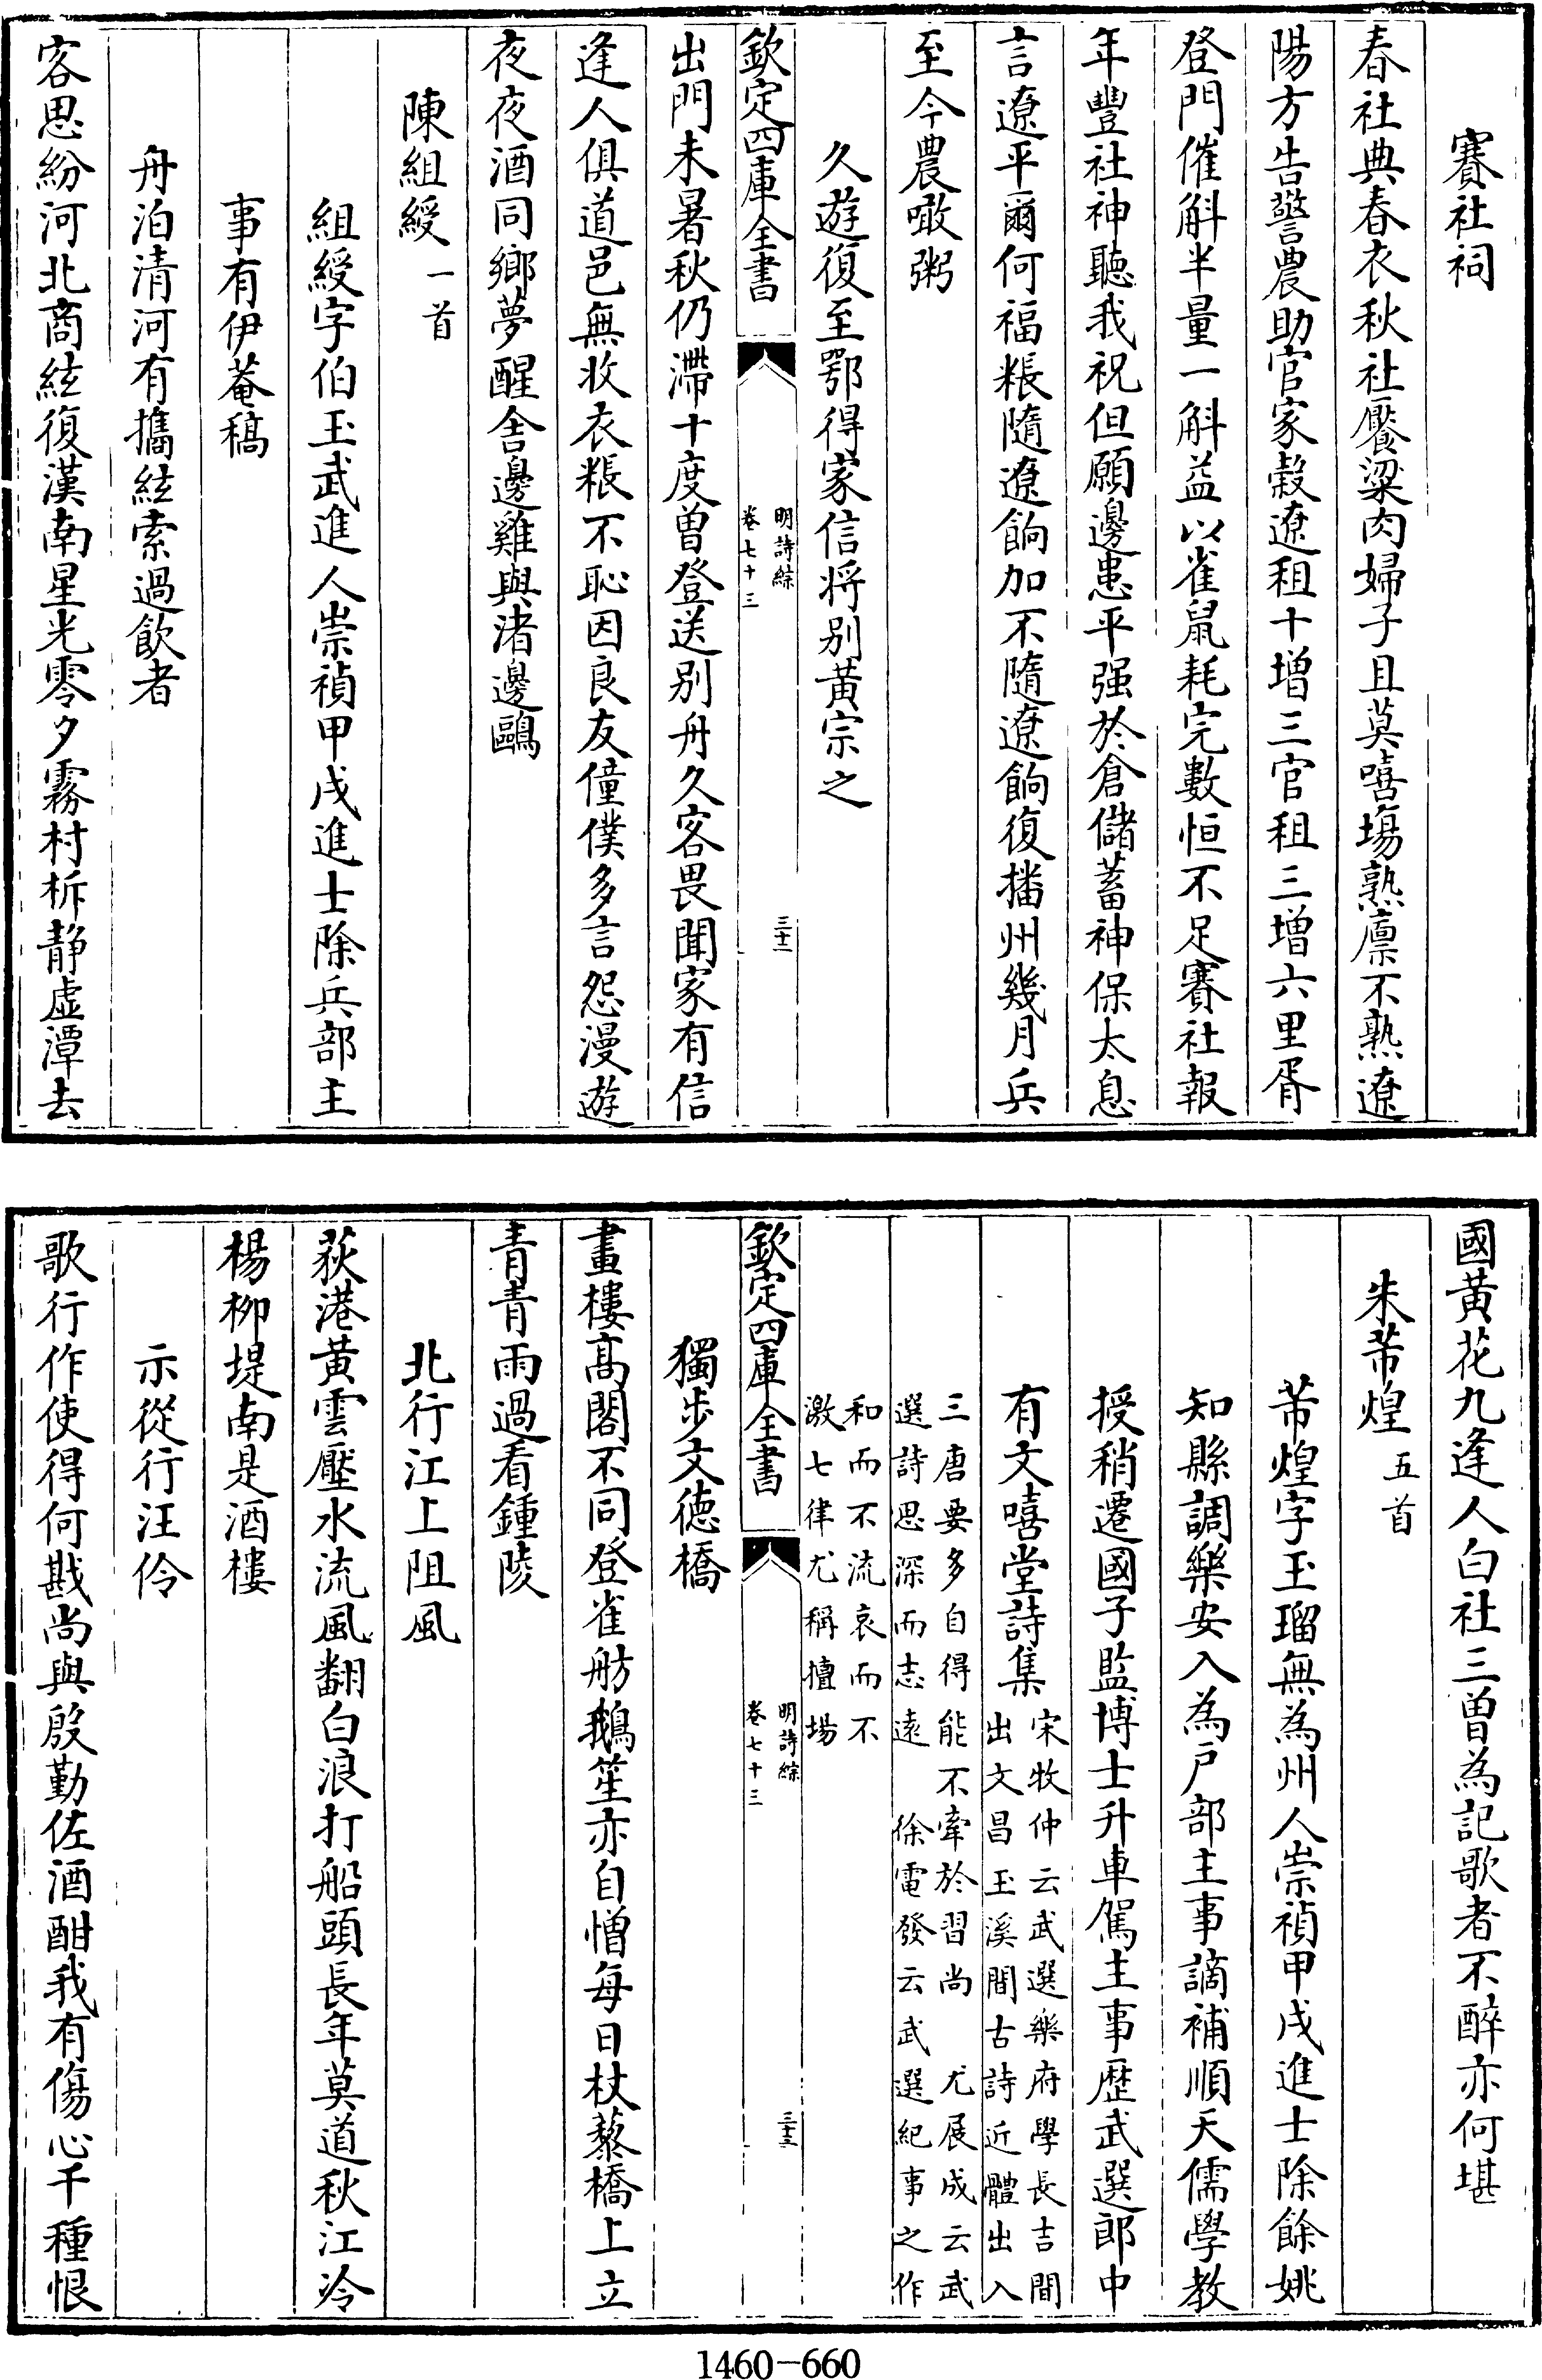 賽社祠
春社典春衣秋社饜粱肉婦子且莫嘻塲熟廪不熟遼
陽方告警農助官家穀遼租十增三官租三增六里胥
登門催斛半量一斛益以雀鼠耗完數恒不足賽社報
年豐社神聽我祝但願邊患平强於倉儲蓄神保太息
言遼平爾何福粻隨遼餉加不隨遼餉復播州幾月兵
至今農噉粥
久遊復至鄂得家信将别黄宗之
欽定四庫全書
明詩綜
卷七十三
三十二
出門未暑秋仍滯十度曾登送别舟久客畏聞家有信
逢人俱道邑無收衣粻不恥因良友僮僕多言怨漫遊
夜夜酒同鄉夢醒舍邊雞與渚邊鷗
陳組綬一首
組綬字伯玉武進人崇禎甲戌進士除兵部主
事有伊菴稿
舟泊清河有攜絃索過飲者
客思紛河北商絃復漢南星光零夕霧村柝静虚潭去
國黄花九逢人白社三曽為記歌者不醉亦何堪
朱芾煌五首
芾煌字玉瑠無為州人崇禎甲戌進士除餘姚
知縣調樂安入為戸部主事謫補順天儒學教
授稍遷國子監博士升車駕主事歴武選郎中
有文嘻堂詩集宋牧仲云武選樂府學長吉間
出文昌玉溪間古詩近體出入
三唐要多自得能不牽於習尚 尤展成云武
選詩思深而志遠 徐電發云武選紀事之作
和而不流哀而不
激七律尤稱擅場
欽定四庫全書
明詩綜
卷七十三
三十三
獨步文徳橋
畫樓高閣不同登雀舫鵝笙亦自憎每日杖藜橋上立
青青雨過看鍾陵
北行江上阻風
荻港黄雲壓水流風翻白浪打船頭長年莫道秋江冷
楊柳堤南是酒樓
示從行汪伶
歌行作使得何戡尚與殷勤佐酒酣我有傷心千種恨
1460-660